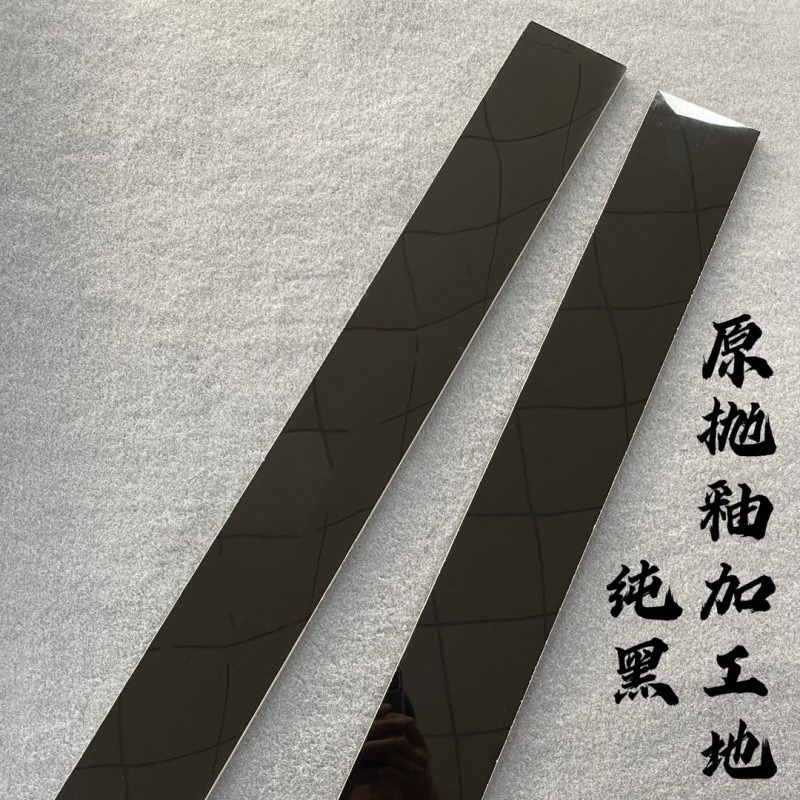 原抛釉加工地
纯黑